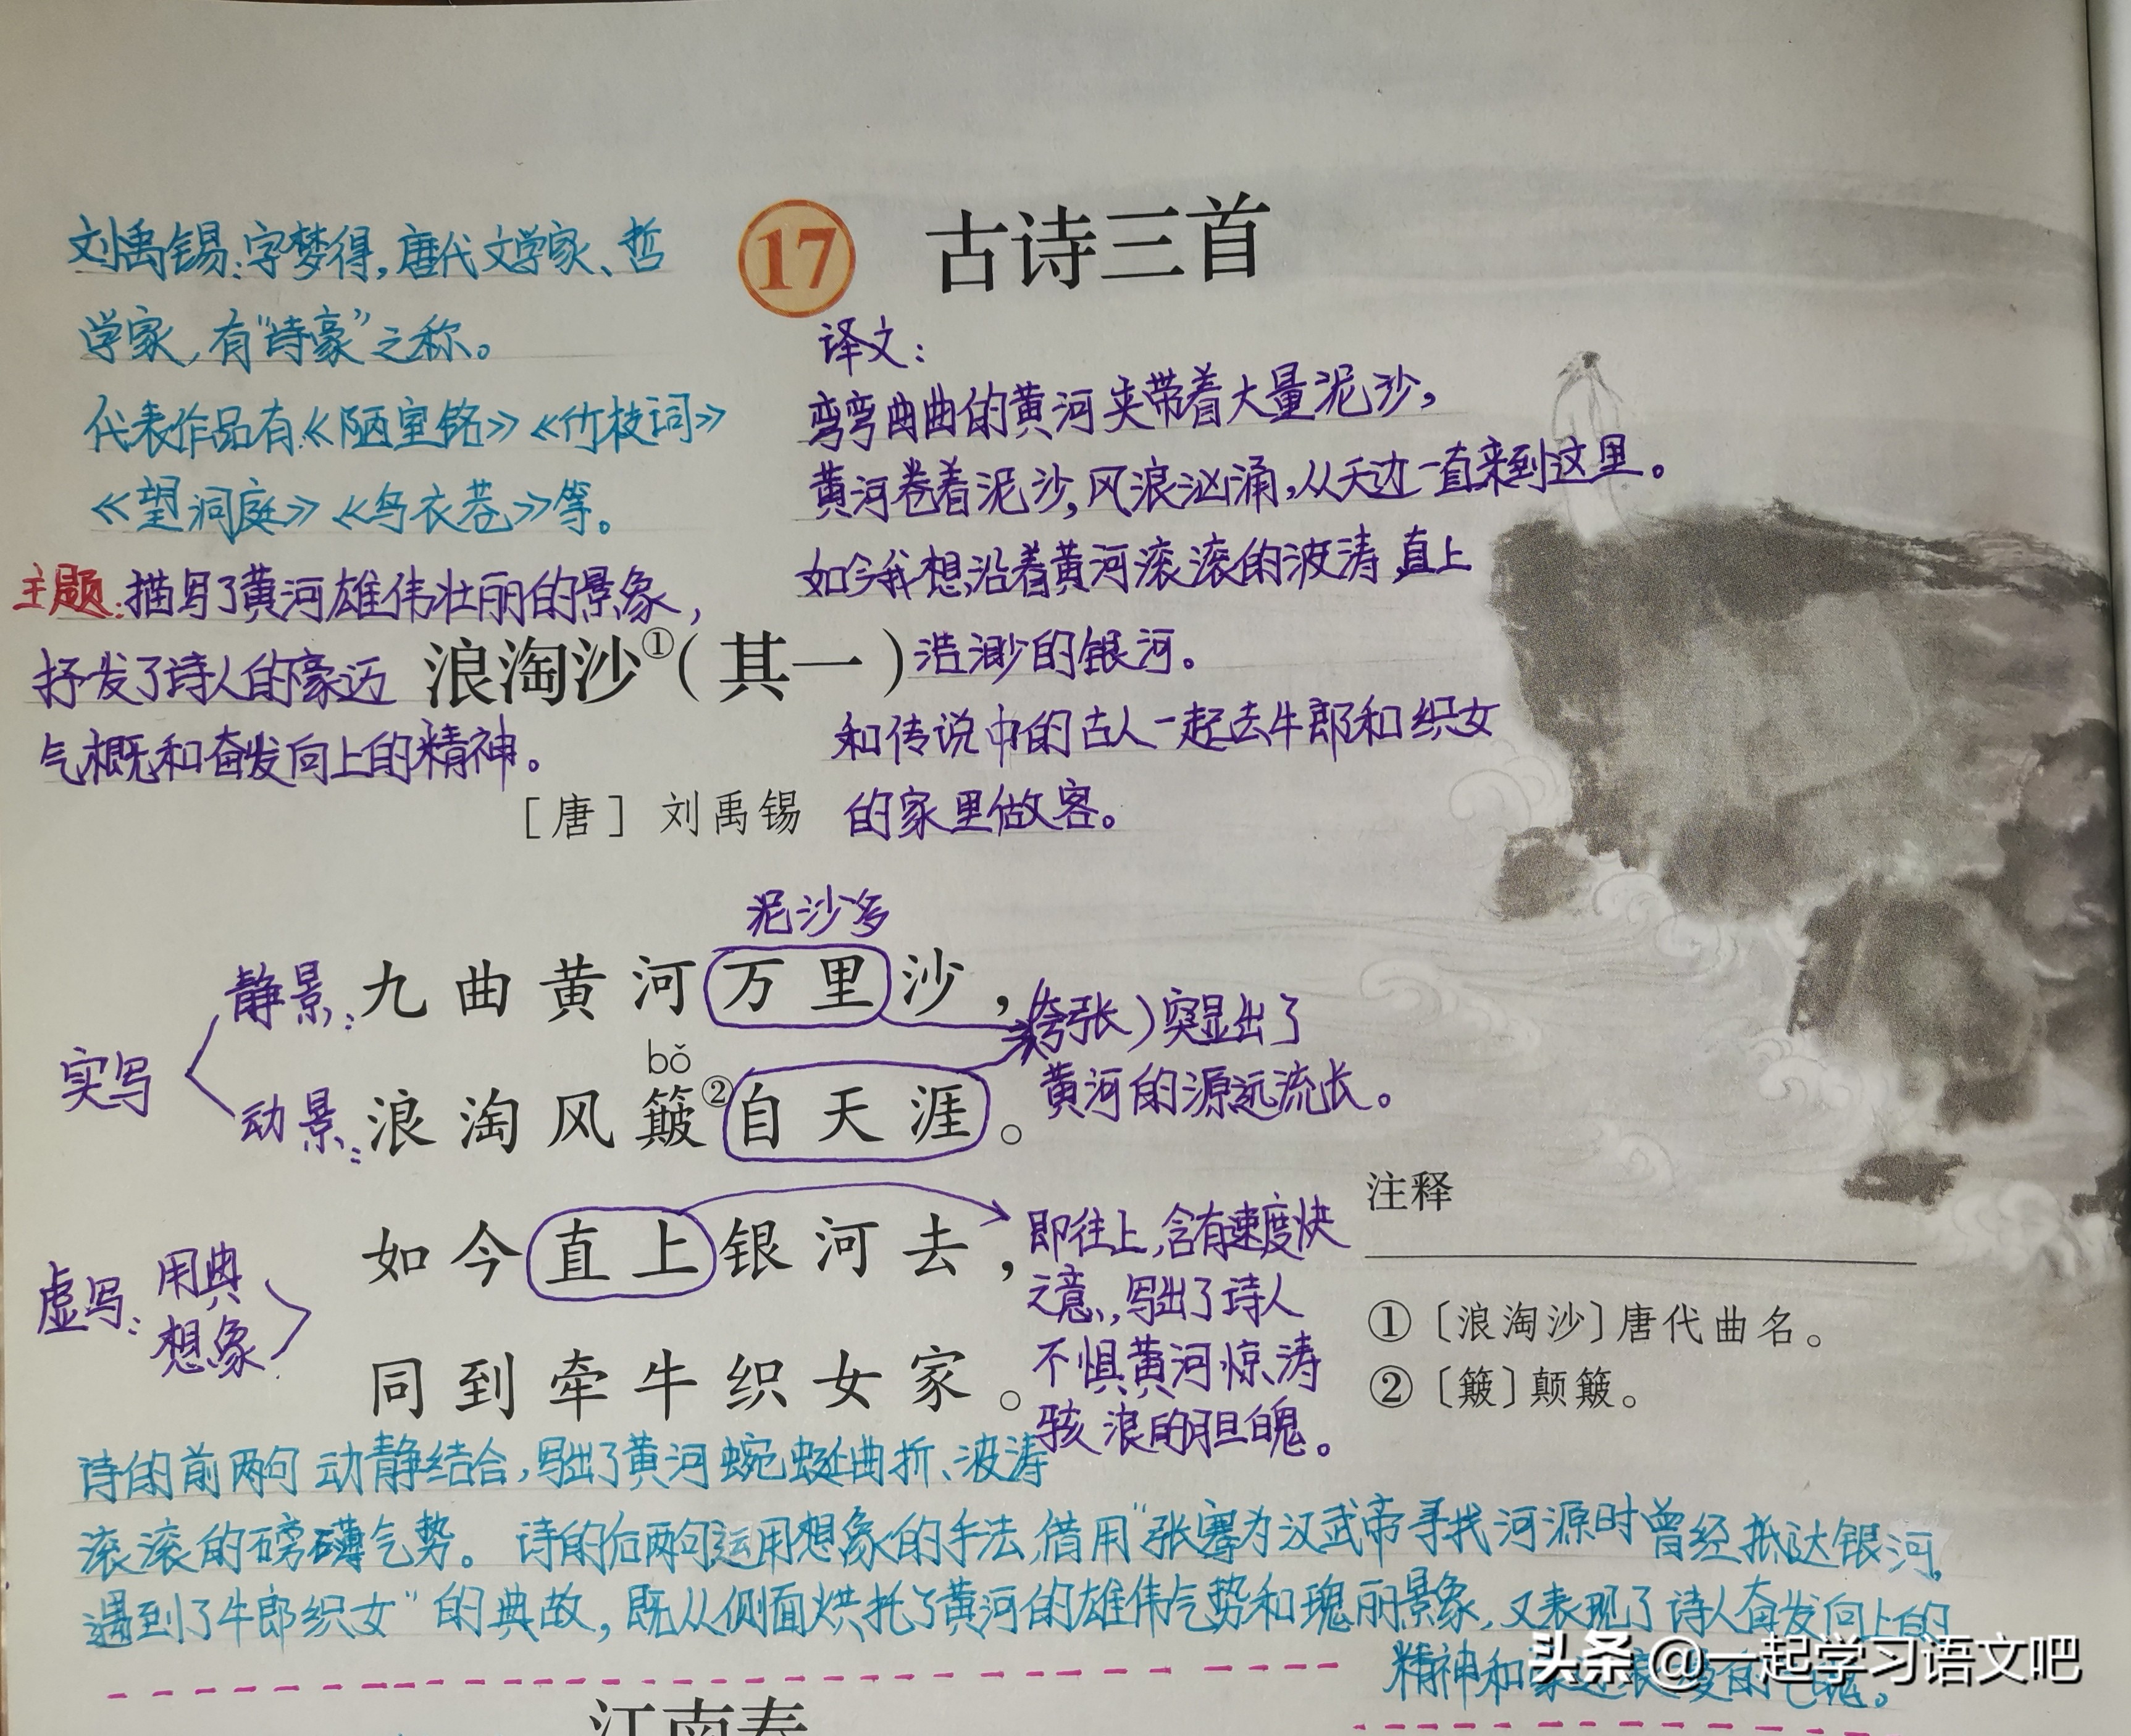 17 古诗三首
刘禹锡:字梦得,唐代文学家、哲
学家,有“诗豪”之称。
代表作品有《陋室铭》《竹枝词》
《望洞庭》《乌衣巷》等。
主题:描写了黄河雄伟壮丽的景象,
抒发了诗人的豪迈
气概和奋发向上的精神。
译文:
弯弯曲曲的黄河夹带着大量泥沙,
黄河卷着泥沙,风浪汹涌,从天边一直来到这里。
如今我想沿着黄河滚滚的波涛,直上
浩渺的银河。
和传说中的古人一起去牛郎和织女
的家里做客。
浪淘沙①(其一)
[唐] 刘禹锡
泥沙多
实写
静景:九曲黄河万里沙,
(夸张)突显出了
黄河的源远流长。
bǒ
动景:浪淘风簸②自天涯。
虚写:用典
想象
如今直上银河去,
同到牵牛织女家。
即往上,含有速度快
之意,写出了诗人
不惧黄河惊涛
骇浪的胆魄。
注释
①〔浪淘沙〕唐代曲名。
②〔簸〕颠簸。
诗的前两句动静结合,写出了黄河蜿蜒曲折、波涛
滚滚的磅礴气势。诗的后两句运用想象的手法,借用“张骞为汉武帝寻找河源时曾经抵达银河,
遇到了牛郎织女”的典故,既从侧面烘托了黄河的雄伟气势和瑰丽景象,又表现了诗人奋发向上的
精神和
头条 @一起学习语文吧
江南春